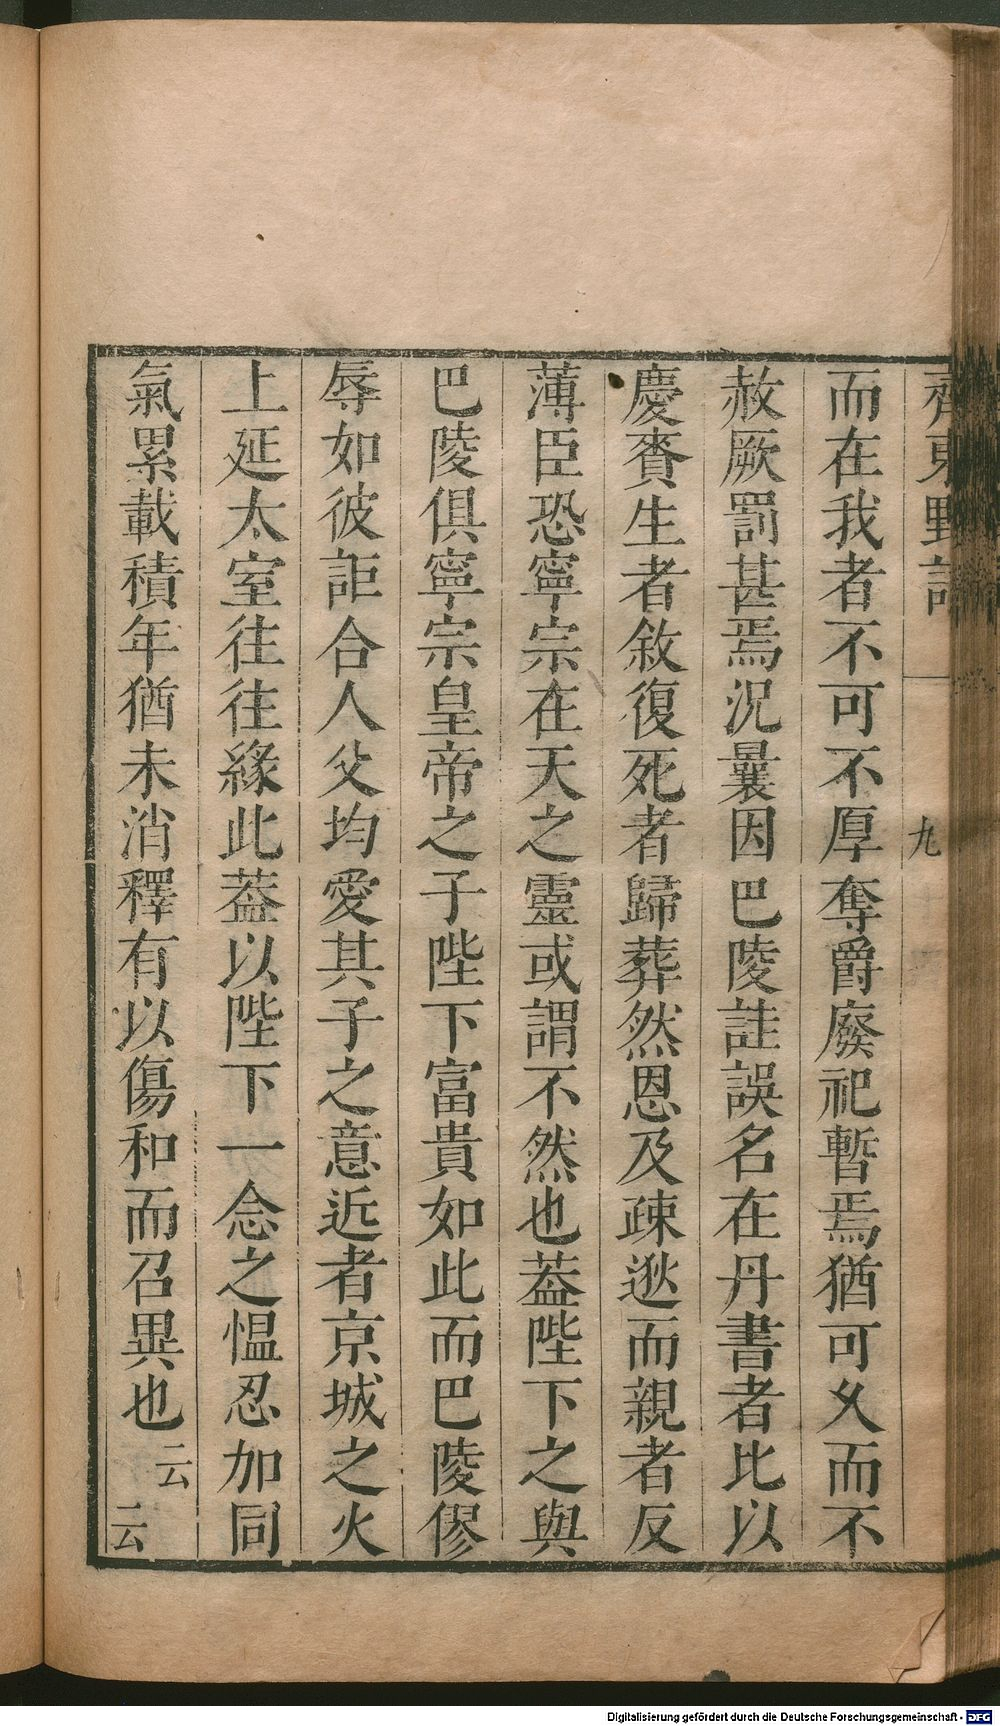 齊東野語
九
而在我者不可不厚奪爵廢祀暫焉猶可久而不
赦厥罰甚焉況曩因巴陵詿誤名在丹書者比以
慶賚生者敘復死者歸葬然恩及疎逖而親者反
薄臣恐寧宗在天之靈或謂不然也葢陛下之與
巴陵俱寧宗皇帝之子陛下富貴如此而巴陵僇
辱如彼詎合人父均愛其子之意近者京城之火
上延太室往往緣此葢以陛下一念之愠忍加同
氣累載積年猶未消釋有以傷和而召異也云云
Digitalisierung gefördert durch die Deutsche Forschungsgemeinschaft - DFG